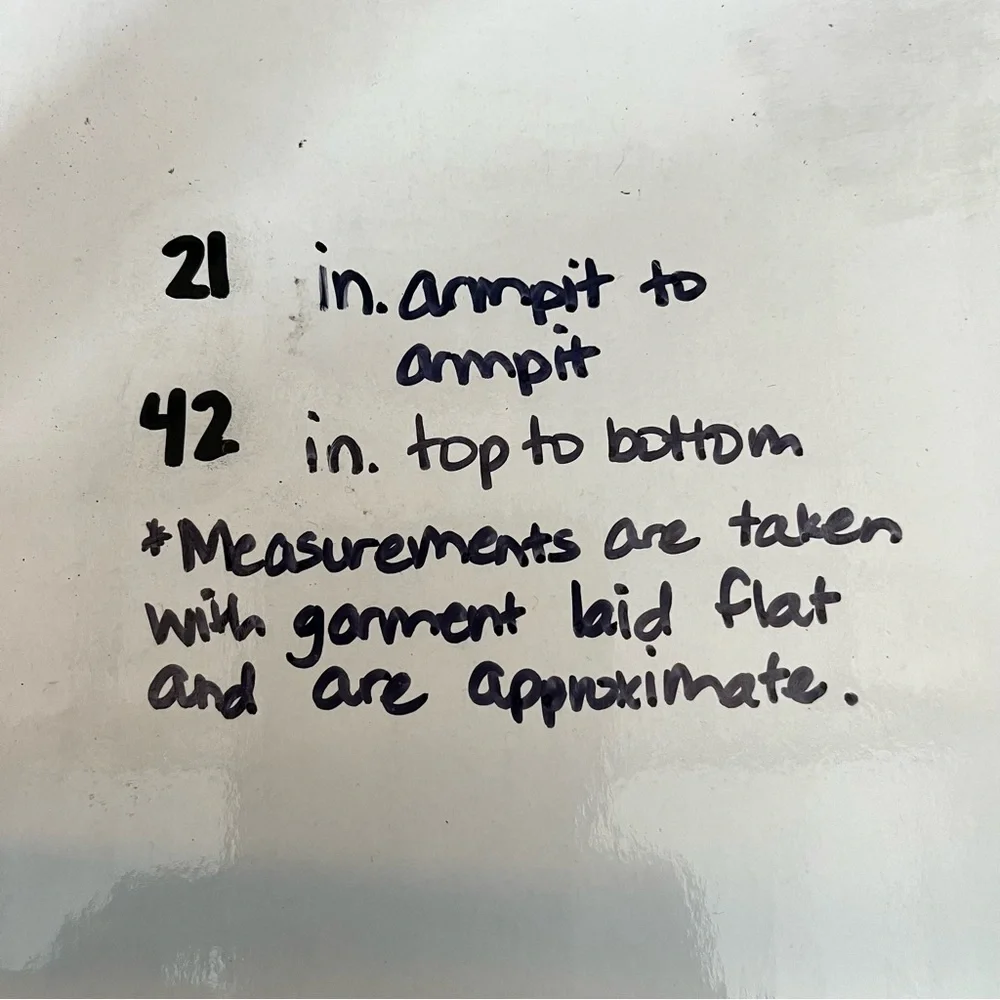 21 in. armpit to
armpit
42 in. top to bottom
*Measurements are taken
with garment laid flat
and are approximate.